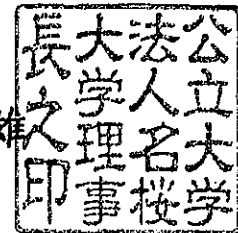 公立大学
法人名桜
大学理事
長之印
雄